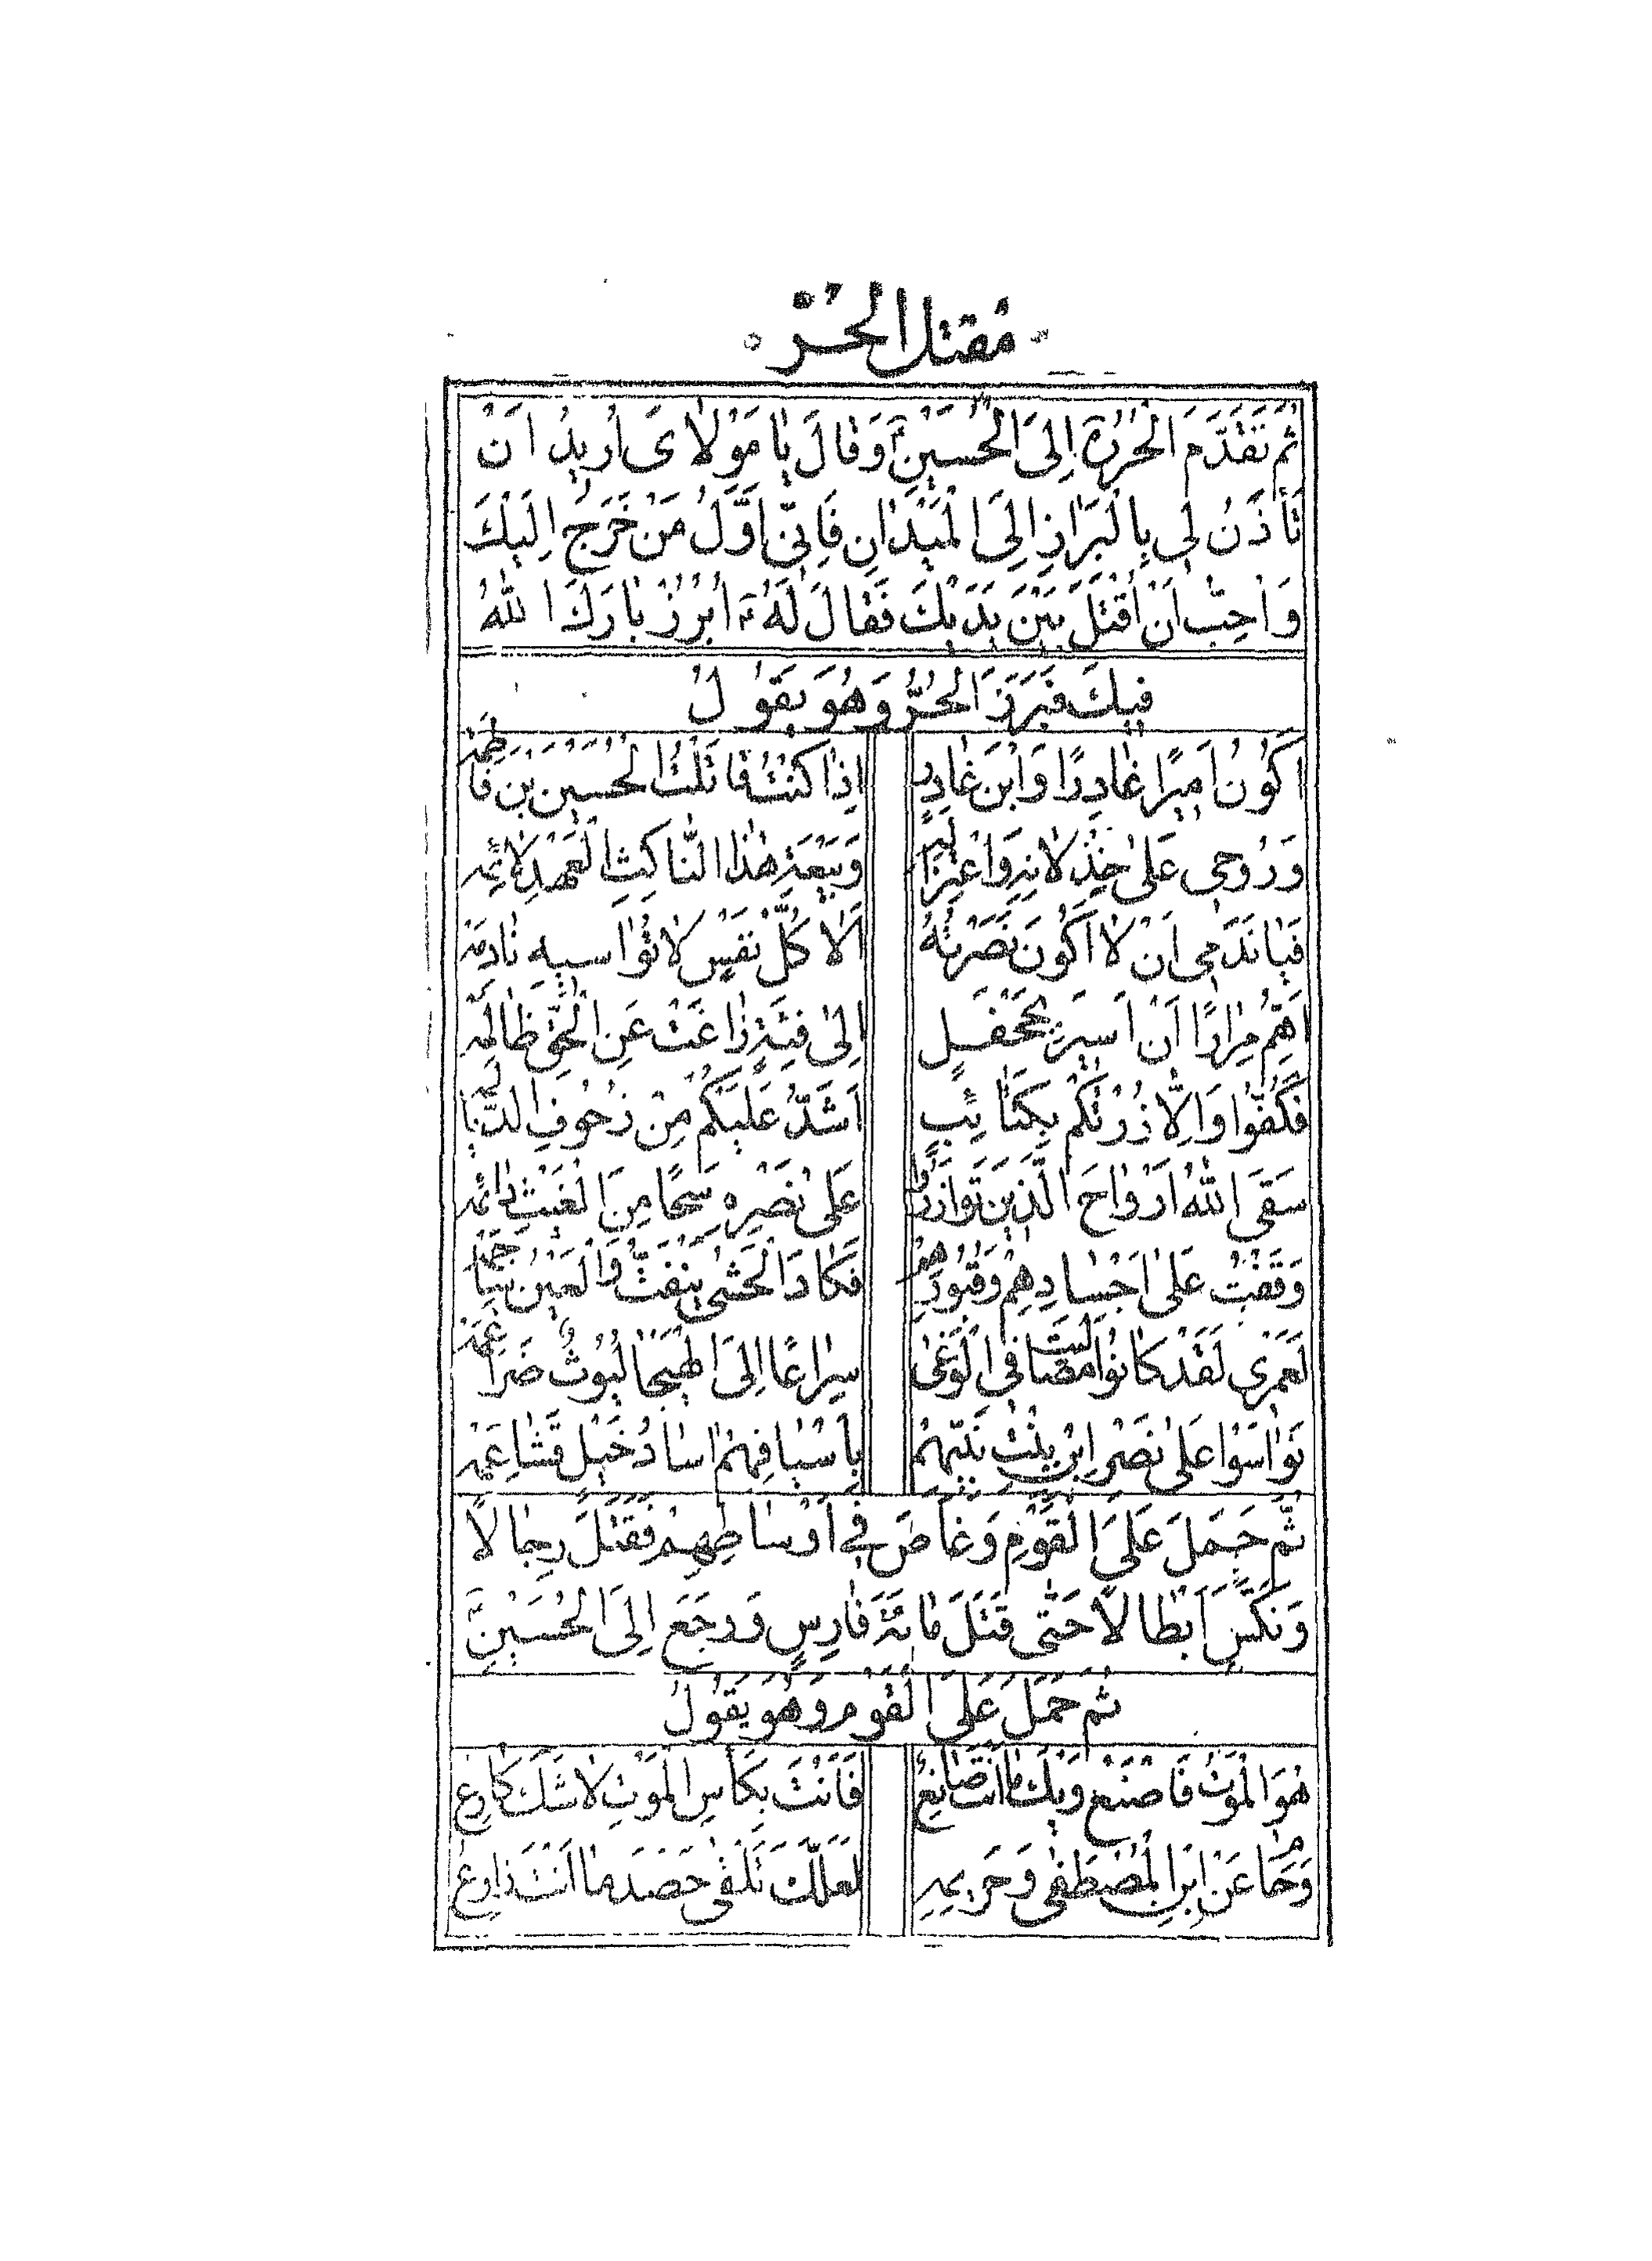 مَقتل الحُرّ
ثُمَّ تَقَدَّمَ الحُرُّ اِلَى الْحُسَيْنِ وَقالَ يا مَوْلايَ اُريدُ اَنْ
تَأذَنُ لي بِالْبَرازِ اِلَى الْمَيْدانِ فَاِنّي اَوَّلُ مَنْ خَرَجَ اِلَيْكَ
وَاُحِبُّ اَنْ اُقْتَلَ بَيْنَ يَدَيْكَ فَقالَ لَهُ اُبْرُزْ بارَكَ اللهُ
فيكَ فَبَرَزَ الحُرُّ وَهُوَ يَقُولُ
اَكُونُ اَميرًا غادِرًا وَابْنَ غادِرٍ اِذا كُنْتُ قاتَلْتُ الْحُسَيْنَ بْنَ فاطِمَه
وَرُوحي عَلى خِذْلانِهِ وَاعْتِزالِهِ وَبَيْعَةِ هٰذَا النّاكِثِ الْعَهْدِ لائِمَه
فَيا نَدَمي اَنْ لا اَكُونَ نَصَرْتُهُ اَلا كُلُّ نَفْسٍ لا تُواسيهِ نادِمَه
اَهُمُّ مِرارًا اَنْ اَسيرَ بِجَحْفَلٍ اِلى فِئَةٍ زاغَتْ عَنِ الْحَقِّ ظالِمَه
فَكُفُّوا وَاِلّا زُرْتُكُمْ بِكَتائِبٍ اَشَدُّ عَلَيْكُمْ مِنْ زُحُوفِ الدَّيالِمَه
سَقَى اللهُ اَرْواحَ الَّذينَ تَوازَرُوا عَلى نَصْرِهِ سَحًّا مِنَ الْغَيْثِ دائِمَه
وَقَفْتُ عَلى اَجْسادِهِمْ وَقُبُورِهِمْ فَكادَ الْحَشى يَنْفَتُّ وَالْعَيْنُ ساجِمَه
لَعَمْري لَقَدْ كانُوا مَصاليتَ فِي الْوَغى سِراعًا اِلَى الْهَيْجا لُيُوثٌ ضَراغِمَه
تَواسَوْا عَلى نَصْرِ ابْنِ بِنْتِ نَبِيِّهِمْ بِاَسْيافِهِمْ اسادُ خَيْلٍ قَشاعِمَه
ثُمَّ حَمَلَ عَلَى الْقَوْمِ وَغاصَ في اَوْساطِهِمْ فَقَتَلَ رِجالًا
وَنَكَّسَ اَبْطالًا حَتّى قَتَلَ مائَةَ فارِسٍ وَرَجَعَ اِلَى الْحُسَيْنِ
ثُمَّ حَمَلَ عَلَى الْقَوْمِ وَهُوَ يَقُولُ
هُوَ الْمَوْتُ فَاصْنَعْ وَيْكَ ما اَنْتَ صانِعُ فَاَنْتَ بِكَأْسِ الْمَوْتِ لا شَكَّ كارِعُ
وَحامِ عَنِ ابْنِ الْمُصْطَفى وَحَريمِهِ لَعَلَّكَ تَلْقى حَصْدَ ما اَنْتَ زارِعُ